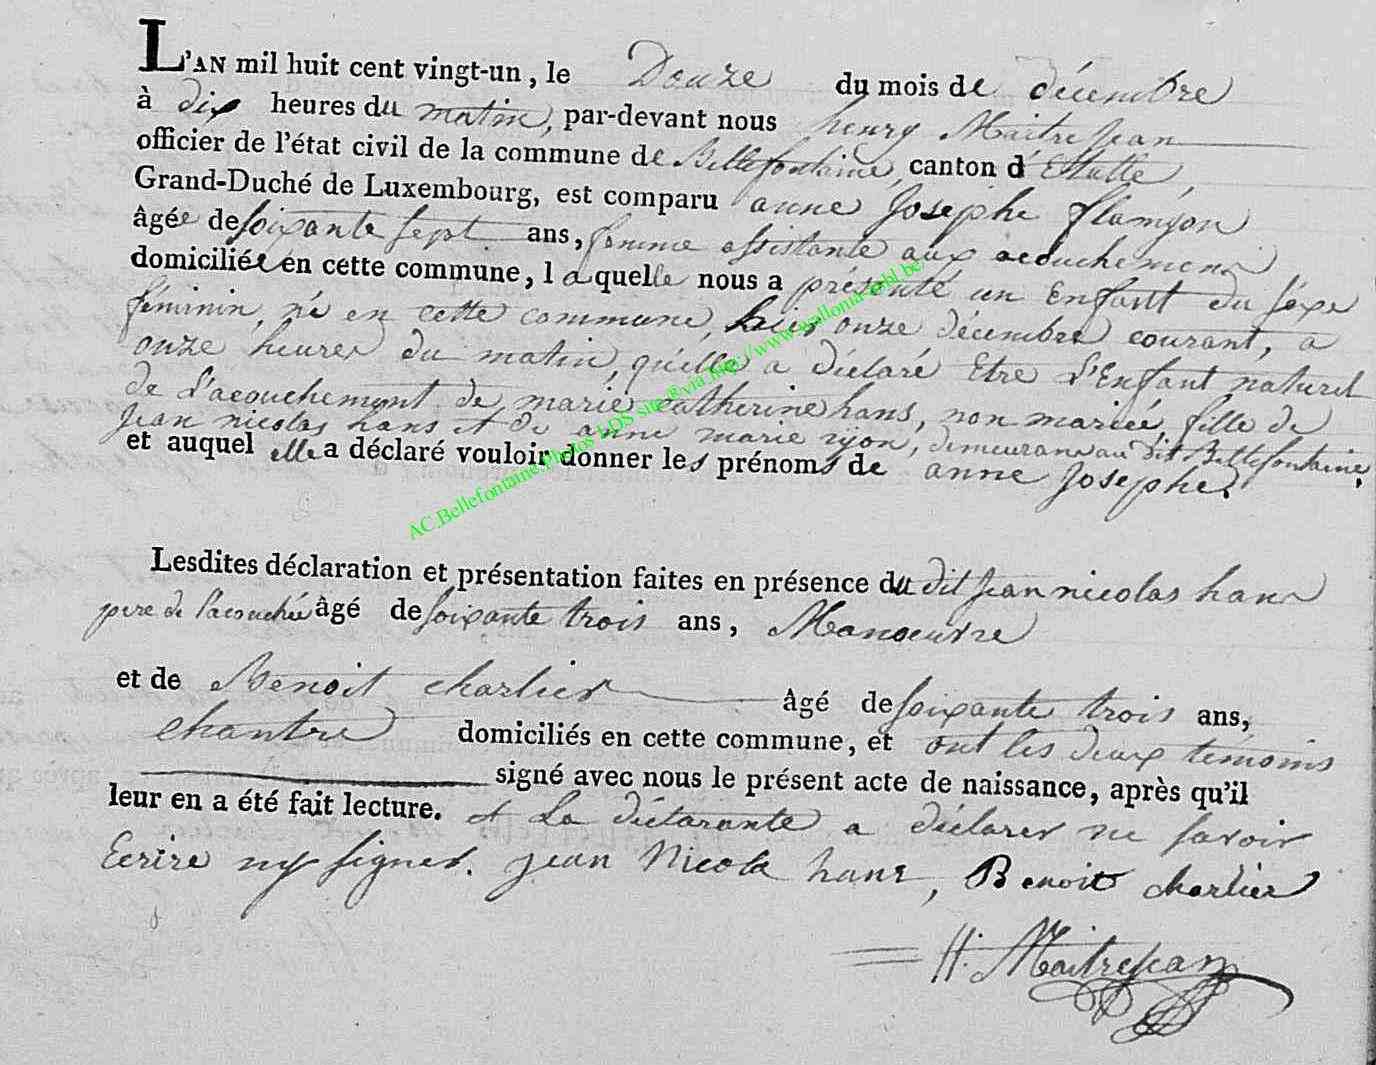 L'AN mil huit cent vingt-un, le Douze du mois de décembre
à dix heures du matin, par-devant nous henry Maitrejean
officier de l'état civil de la commune de Bellefontaine, canton d'Etalle,
Grand-Duché de Luxembourg, est comparu anne Josephe flamion
âgée de soixante sept ans, femme assistante aux acouchemens
domiciliée en cette commune, laquelle nous a présenté un Enfant du sexe
féminin, né en cette commune, hier onze décembre courant, a
onze heures du matin, qu'elle a déclaré Etre L'Enfant naturel
de L'acouchement de marie catherine hans, non mariée, fille de
Jean nicolas hans et de anne marie ryon, demeurans au dit Bellefontaine,
et auquel elle a déclaré vouloir donner les prénoms de anne Josephe.
Lesdites déclaration et présentation faites en présence du dit Jean nicolas hans
pere de l'acouchée âgé de soixante trois ans, Manoeuvre
et de Benoit charlier âgé de soixante trois ans,
chantre domiciliés en cette commune, et ont les deux témoins
signé avec nous le présent acte de naissance, après qu'il
leur en a été fait lecture. et La déclarante a déclarer ne savoir
Ecrire ny signer. jean Nicola hans, Benoit charlier
H. Maitrejean
AC.Bellefontaine,photos LDS site®via.http://www.wallonia-asbl.be